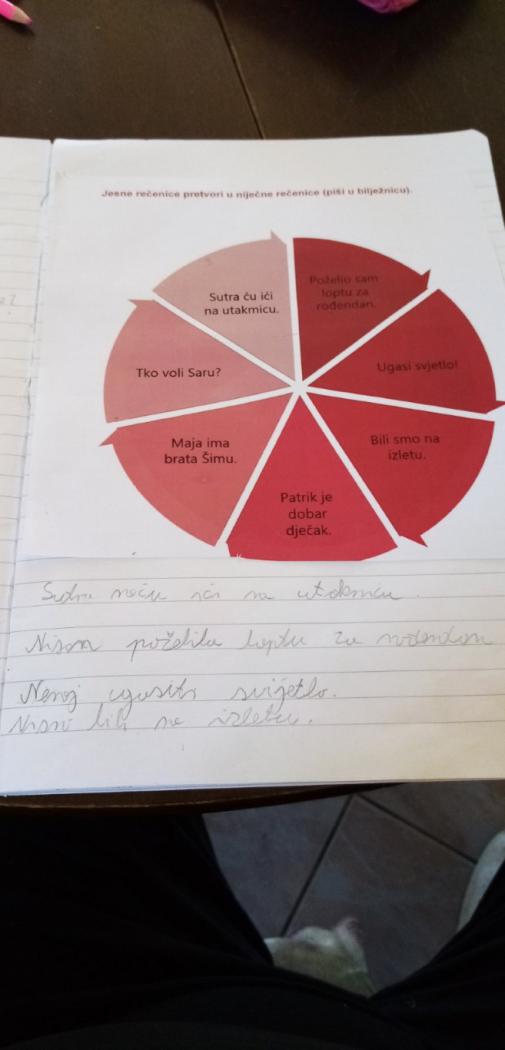 Jesne rečenice pretvori u niječne rečenice (piši u bilježnicu).
Poželio sam
loptu za
rođendan.
Ugasi svjetlo!
Bili smo na
izletu.
Patrik je
dobar
dječak.
Maja ima
brata Šimu.
Tko voli Saru?
Sutra ću ići
na utakmicu.
Sutra neću ići na utakmicu.
Nisam poželila loptu za rođendan
Nemoj ugasiti svijetlo.
Nismo bili na izletu.